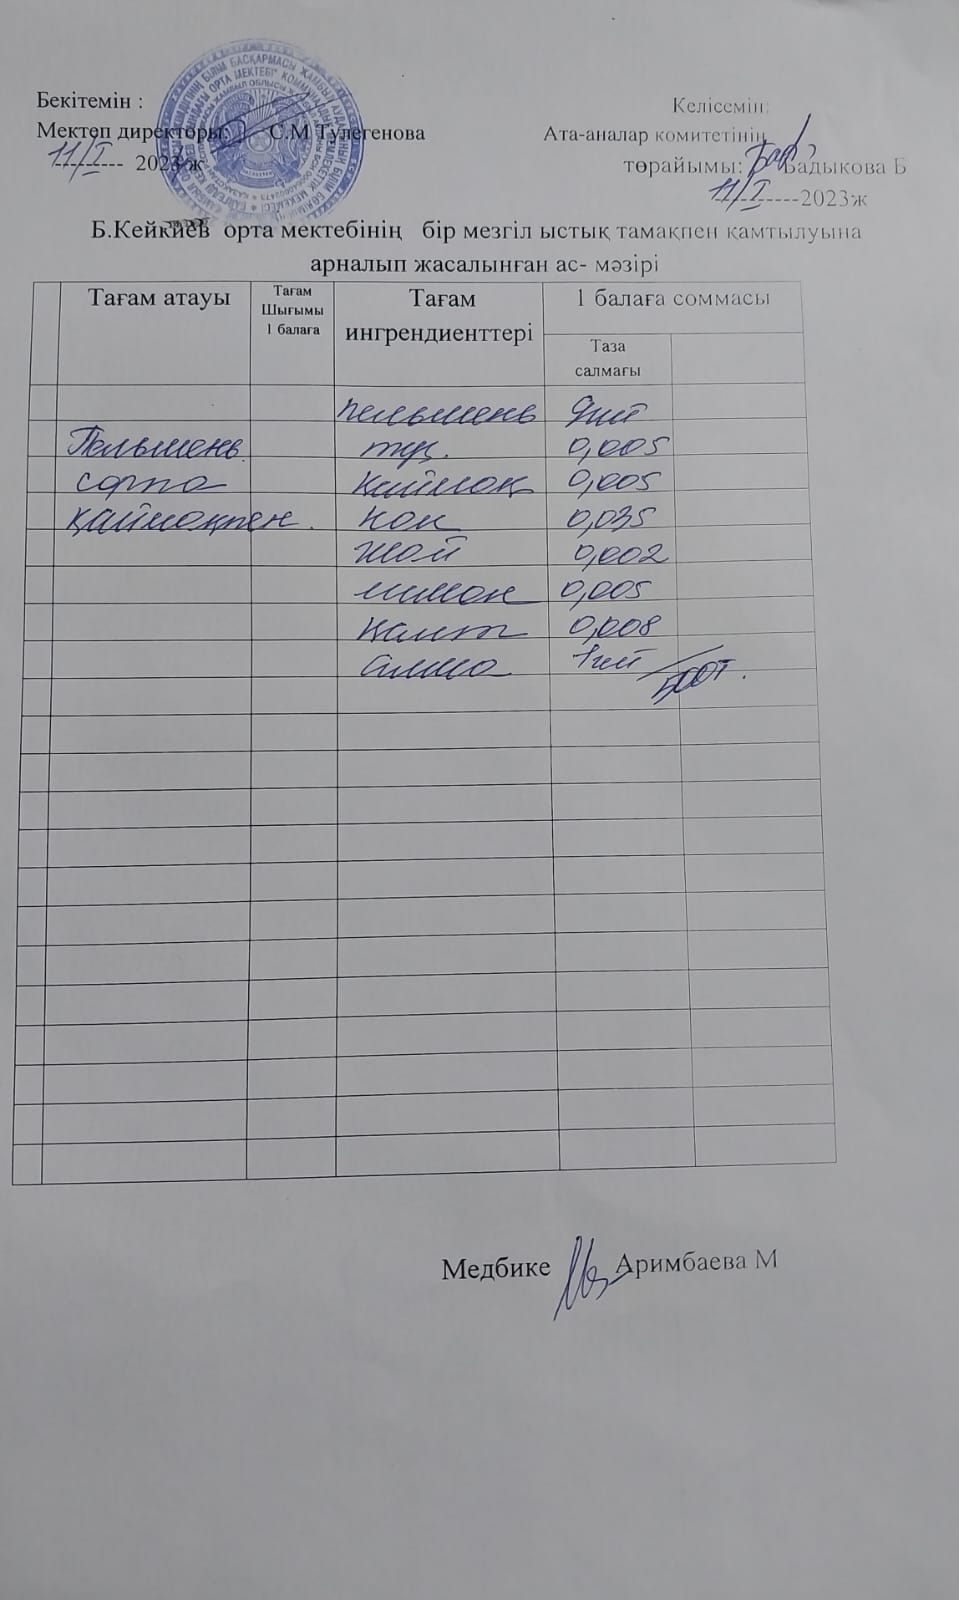 Бекітемін :
Мектеп директоры: С.М Тулегенова
11/I 2023 ж
Келісемін:
Ата-аналар комитетінің
төрайымы: Бадыкова Б
11/I 2023ж
Б.Кейкиев орта мектебінің бір мезгіл ыстық тамақпен қамтылуына
арналып жасалынған ас- мәзірі
Тағам атауы
Тағам
Шығымы
1 балаға
Тағам
ингрендиенттері
1 балаға соммасы
Таза
салмағы
пельмень 9шт
Пельмень тұз. 0,005
сорпа қаймоқ 0,005
қаймоқпен. нон 0,035
шой 0,002
лимон 0,005
қант 0,008
алма 1шт
Медбике Аримбаева М